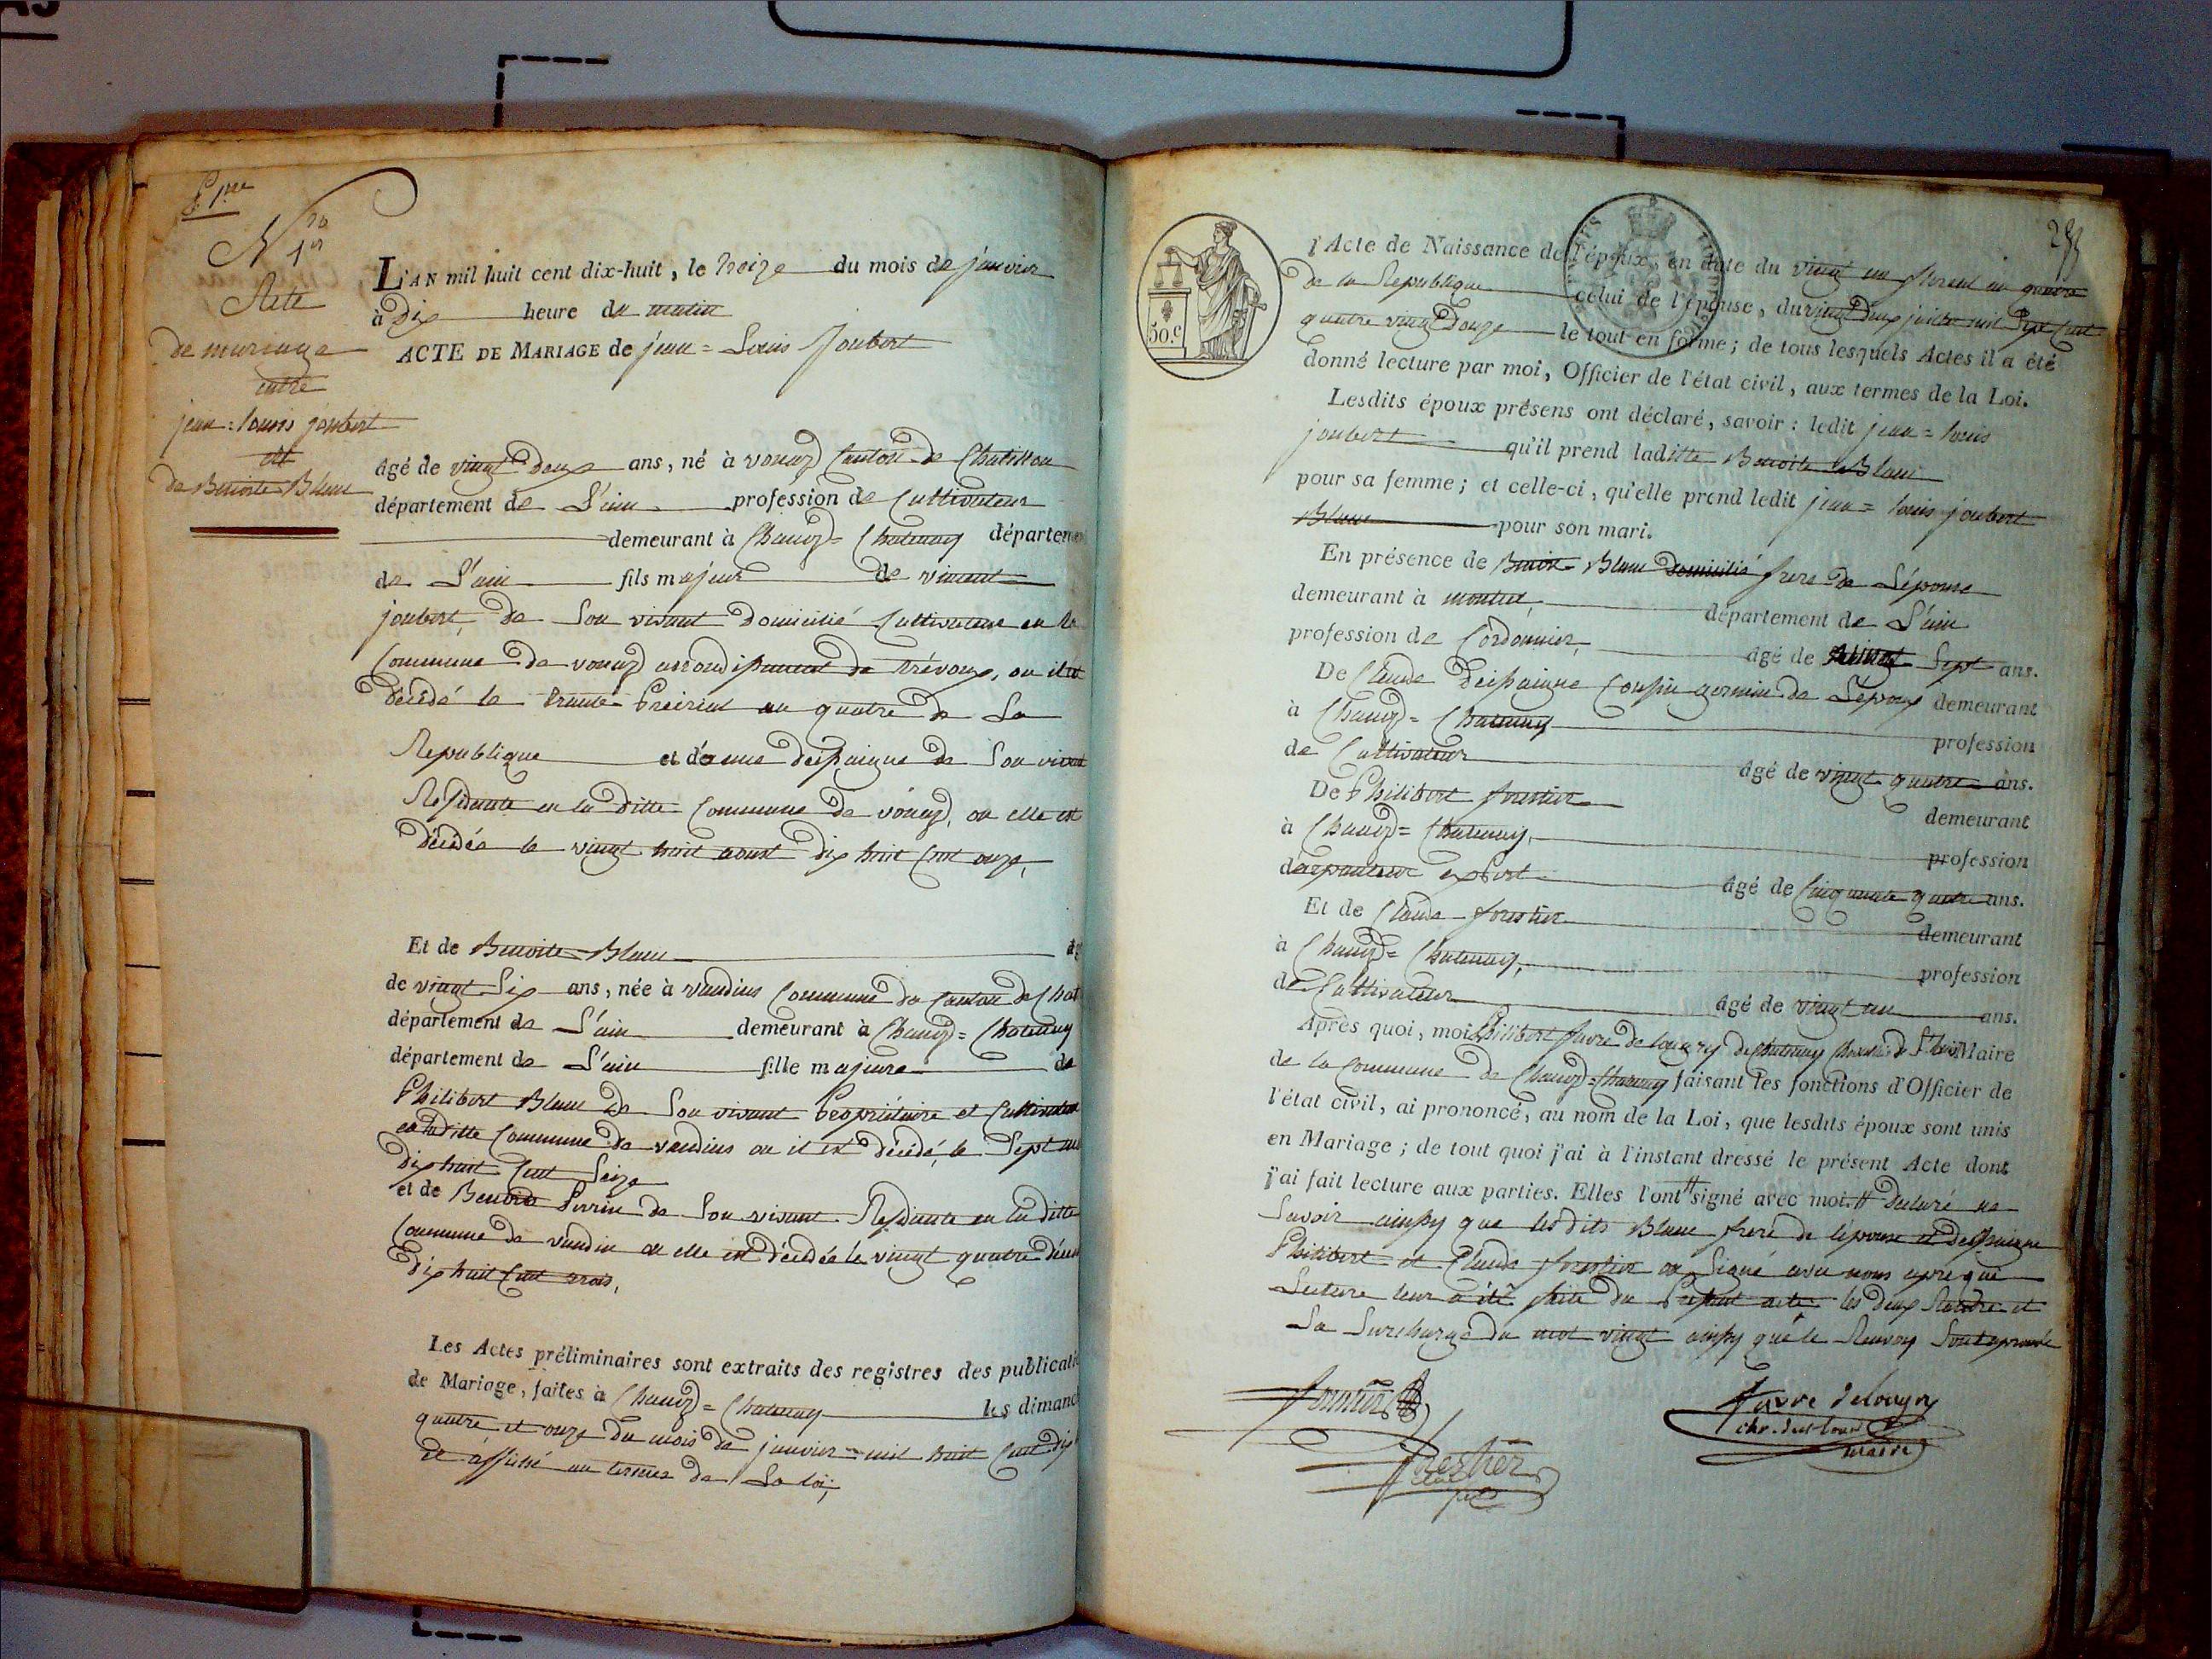 P. 1re
No 1er
Acte
de mariage
entre
jean=louis joubert
et
de Benoite Blanc
L'AN mil huit cent dix-huit, le treize du mois de janvier
à Dix heure du matin
ACTE DE MARIAGE de jean=Louis Joubert
âgé de vingt deux ans, né à vonnaz Canton de Chatillon
département de L'ain profession de Cultivateur
demeurant à Chanoz=Chatenay départem
de L'ain fils majeur de vincent
joubert, de Son vivant Domicilié Cultivateur en la
Commune de vonnaz arrondissement de Trévoux, ou il est
Décédé le trante Preirial an quatre de La
Republique et d'anne despaigne de Son vivant
Residante en la Ditte Commune de vonnaz, ou elle est
Décédée le vingt huit aoust Dix huit Cent onze,
Et de Benoite Blanc âg
de vingt Six ans, née à vandins Commune du Canton de Chat
département de L'ain demeurant à Chanoz=Chatenay
département de L'ain fille majeure de
Philibert Blanc de Son vivant Propriétaire et Cultivateur
en laditte Commune de vandins ou il est Décédé, le Sept
Dix huit Cent Seize
et de Benoite Perrin de Son vivant Residante en la ditte
Commune de vandin ou elle est Décédée le vingt quatre
Dix huit Cent trois,
Les Actes préliminaires sont extraits des registres des publicatio
de Mariage, faites à Chanoz=Chatenay les dimanc
quatre et onze Du mois de janvier mil huit Cent Dix
et affiché au termes de La loi,
50.c
l'Acte de Naissance de l'époux, en date du vingt un floreal an quatre
de la Republique celui de l'épouse, du vingt Deux mil Sept Cent
quatre vingt Douze le tout en forme; de tous lesquels Actes il a été
donné lecture par moi, Officier de l'état civil, aux termes de la Loi.
Lesdits époux présens ont déclaré, savoir: ledit jean=louis
joubert qu'il prend laditte Benoite Blanc
pour sa femme; et celle-ci, qu'elle prend ledit jean=louis joubert
Blanc pour son mari.
En présence de Benoit Blanc Domicilié frere de L'épouse
demeurant à département de L'ain
profession de Cordonnier, âgé de vingt Sept ans.
De Claude Despaigne Cousin germain de L'époux demeurant
à Chanoz=Chatenay profession
de Cultivateur âgé de vingt quatre ans.
De Philibert forestier demeurant
à Chanoz=Chatenay, profession
de arpenteur expert âgé de Cinquante quatre ans.
Et de Claude forestier demeurant
à Chanoz=Chatenay, profession
de Cultivateur âgé de vingt un ans.
Après quoi, moi Philibert favre de longry de Chatenay Chevalier de St louis Maire
de la Commune de Chanoz=Chatenay faisant les fonctions d'Officier de
l'état civil, ai prononcé, au nom de la Loi, que lesdits époux sont unis
en Mariage; de tout quoi j'ai à l'instant dressé le présent Acte dont
j'ai fait lecture aux parties. Elles l'ont # signé avec moi. # Declaré ne
Savoir ainsy que lesdits Blanc frere de l'épouse et despaigne
Philibert et Claude forestier on Signé avec nous apre que
Lecture leur a été faite du Present acte les deux et
La Surcharge Du mot vingt ainsy que le Renvoy Sont aprouvée
forestier
Forestier
fils
favre delongry
chr. de st louis
maire